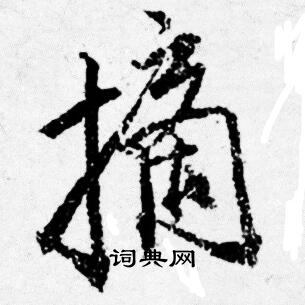 摘
词典网